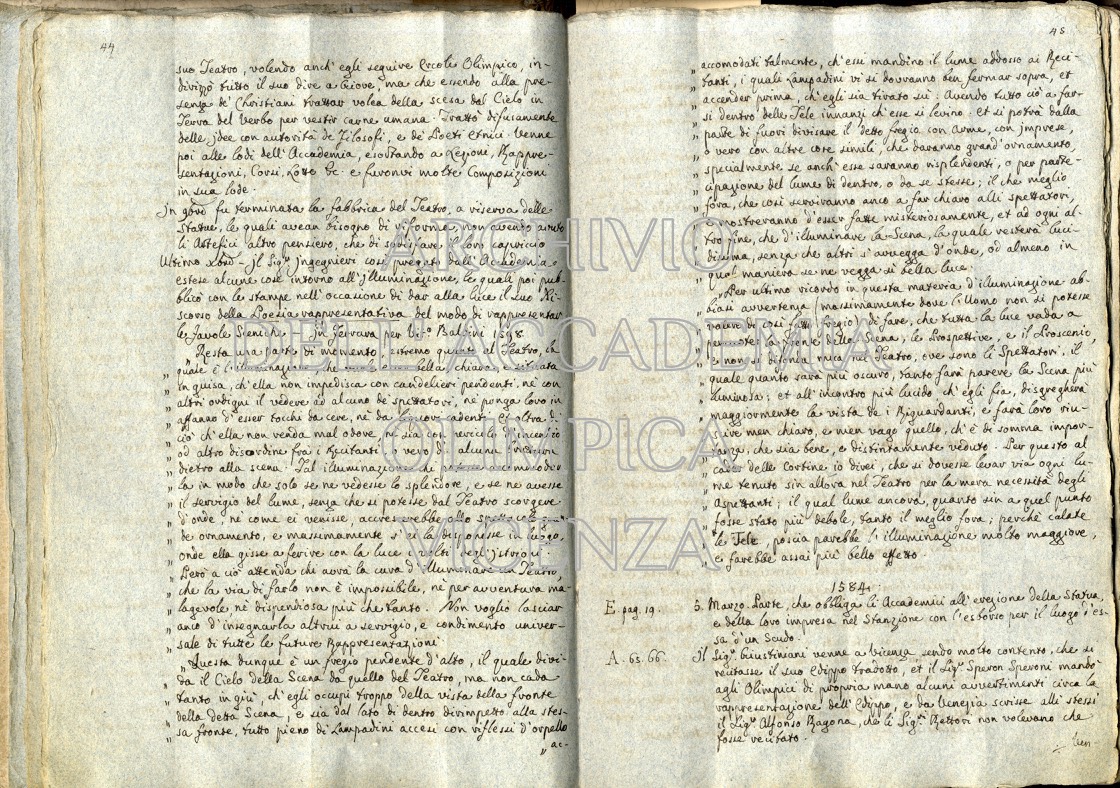 44
suo Teatro, volendo anch'egli seguire Ercole Olimpico, in-
dirizzò tutto il suo dire a Giove, ma che essendo alla pre-
senza de' Christiani trattar volea della scesa dal Cielo in
Terra del Verbo per vestir carne umana. Trattò difusamente
delle jdee con autorità de Filosofi, e de' Poeti Etnici. Venne
poi alle lodi dell'Accademia, esortando a Lezioni, Rappre-
sentazioni, Corsi, Lotte &c. e furonvi molte Composizioni
in sua lode.
fu terminata la fabbrica del Teatro, a riserva delle
statue, le quali avean bisogno di riforma, non avendo avuto
li Artefici altro pensiero, che di sodisfare il loro capriccio
Ultimo Jl Sig.r Jngegnieri così pregato dall'Accademia
estese alcune cose intorno all'jlluminazione, le quali poi pub-
blicò con le stampe nell'occasione di dar alla luce il suo Di-
scorso della Poesia rappresentativa del modo di rappresentar
le Favole Sceniche. Jn Ferrara per Vit.o Baldini 1598.
„ Resta una parte di momento estremo quanto al Teatro, la
„ quale è l'illuminazione, che bella, chiara, e situata
„ in guisa, ch'ella non impedisca con candelieri pendenti, nè con
„ altri ordigni il vedere ad alcuno de spettatori, nè ponga loro in
„ affanno d'esser tocchi da cere, nè da liquore cadente. Et oltra di
„ ciò ch'ella non renda mal odore, nè sia con pericolo d'incendio
„ od altro disordine fra i Recitanti, o vero di alcuni
„ dietro alla scena. Tal illuminazione chi potesse accomodar-
„ la in modo che solo se ne vedesse lo splendore, e se ne avesse
„ il servigio del lume, senza che si potesse dal Teatro scorgere
„ d'onde, nè come ei venisse, accrescerebbe allo spettacolo gran-
„ de ornamento, e massimamente s'ei la disponesse in luogo,
„ onde ella gisse a ferire con la luce i volti degl'jstrioni.
„ Però a ciò attenda chi avrà la cura d'illuminare un Teatro,
„ che la via di farlo non è impossibile, nè per avventura ma-
„ lagevole, nè dispendiosa più che tanto. Non voglio lasciar
„ anco d'insegnarla altrui a servigio, e condimento univer-
„ sale di tutte le future Rappresentazioni
„ Questa dunque è un fregio pendente d'alto, il quale divi-
„ da il Cielo della Scena da quello del Teatro, ma non cada
„ tanto in giù, ch'egli occupi troppo della vista della fronte
„ della detta Scena, e sia dal lato di dentro dirimpetto alla stes-
„ sa fronte, tutto pieno di Lampadini accesi con riflessi d'orpello
„ ac-
45
„ accomodati talmente, ch'essi mandino il lume addosso ai Reci-
„ tanti, i quali Lampadini vi si dovranno ben fermar sopra, et
„ accender prima, ch'egli sia tirato sù: Avendo tutto ciò a far-
„ si dentro delle Tele innanzi ch'esse si levino. Et si potrà dalla
„ parte di fuori divisare il detto fregio con Arme, con jmprese,
„ o vero con altre cose simili, che daranno grand'ornamento,
„ specialmente se anch'esse saranno risplendenti, o per parte-
„ cipazione del lume di dentro, o da se stesse; il che meglio
„ fora, che così serviranno anco a far chiaro alli spettatori,
„ e mostreranno d'esser fatte misteriosamente, et ad ogni al-
„ tro fine, che d'illuminare la Scena, la quale resterà luci-
„ dissima, senza che altri s'avvegga d'onde, od almeno in
„ qual maniera se ne vegga sì bella luce.
„ Per ultimo ricordo in questa materia d'illuminazione ab-
„ biasi avvertenza (massimamente dove l'Uomo non si potesse
„ valere di così fatti fregi) di fare, che tutta la luce vada a
„ percoter la fronte della Scena, le Prospettive, e il Proscenio,
„ e non si difonda mica nel Teatro, ove sono li Spettatori, il
„ quale quanto sarà più oscuro, tanto farà parere la Scena più
„ luminosa; et all'incontro più lucido, ch'egli fia, disgregherà
„ maggiormente la vista de i Riguardanti, e farà loro riu-
„ scire men chiaro, e men vago quello, ch'è di somma impor-
„ tanza, che sia bene, e distintamente veduto. Per questo al
„ cader delle Cortine io direi, che si dovesse levar via ogni lu-
„ me tenuto sin allora nel Teatro per la mera necessità degli
„ Aspettanti; il qual lume ancora, quanto sin a quel punto
„ fosse stato più debole, tanto il meglio fora; perchè calate
„ le Tele, poscia parebbe l'illuminazione molto maggiore,
„ e farebbe assai più bello effetto.
1584.
E. pag. 19. 5. Marzo. Parte, che obbliga li Accademici all'erezione della Statua,
e della loro impresa nel Stanzion con l'esborso per il luogo d'es-
sa d'un Scudo.
A. 65. 66. Jl Sig.r Giustiniani venne a Vicenza sendo molto contento, che si
recitasse il suo Edippo tradotto, et il Sig.r Speron Speroni mandò
agli Olimpici di propria mano alcuni avvertimenti circa la
rappresentazione dell'Edippo, e da Venezia scrisse alli stessi
il Sig.r Alfonso Ragona, che li Sig.ri Rettori non volevano che
fosse recitato.
ARCHIVIO
DELL'ACCADEMIA
OLIMPICA
VICENZA